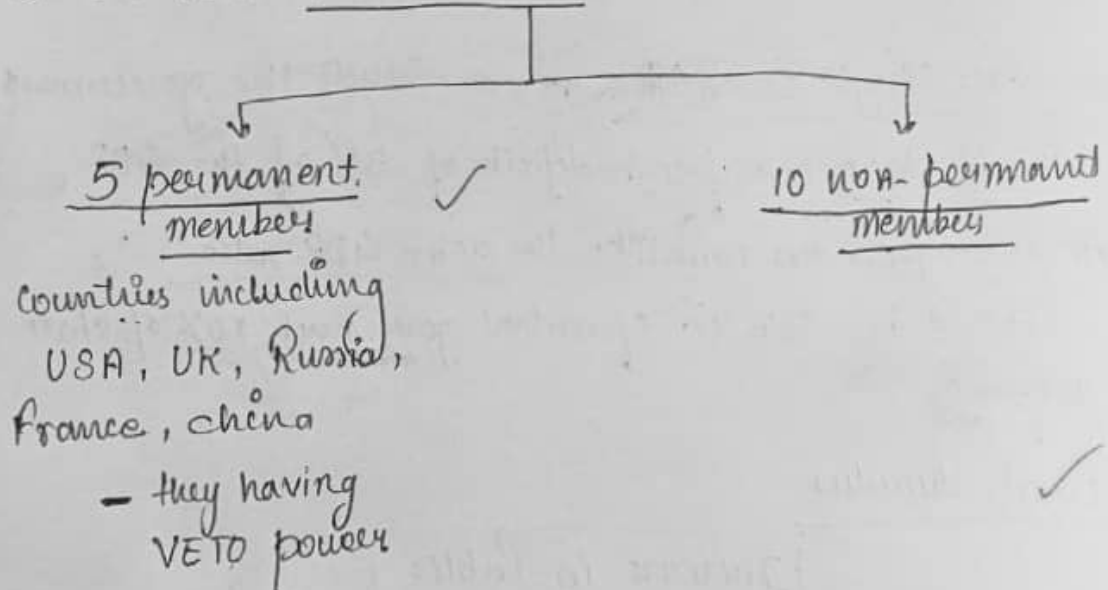 5 permanent.
members
10 non-permanant
members
countries including
USA, UK, Russia,
france, china
- they having
VETO power